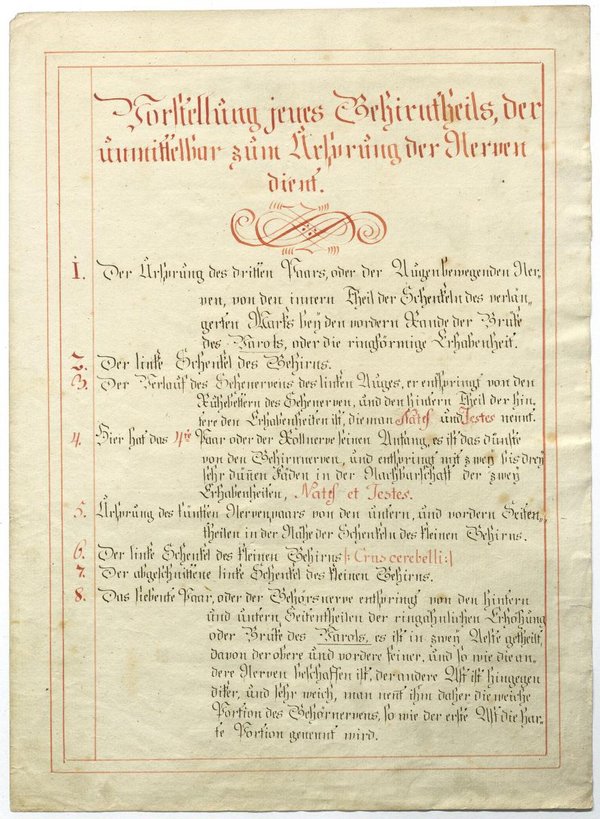 Vorstellung jenes Gehirntheils, der
unmittelbar zum Ursprung der Nerven
dient.
1. Der Ursprung des dritten Paars, oder der Augenbewegenden Ner-
ven, von den innern Theil der Schenkeln des verlän-
gerten Marks bey den vordern Rande der Brüke
des Varols, oder die ringförmige Erhabenheit.
2. Der linke Schenkel des Gehirns.
3. Der Verlauf des Sehenervens des linken Auges, er entspringt von den
Rühebettern des Sehenerven, und den hintern Theil der hin-
tere den Erhabenheiten ist, die man Nates und Testes nennt.
4. Hier hat das 4te Paar oder der Rollnerve seinen Anfang, es ist das dünste
von den Gehirnnerven, und entspringt mit zwey bis drey
sehr dünen Fäden in der Nachbarschaft der zwey
Erhabenheiten, Nates et Testes.
5. Ursprung des fünften Nervenpaars von den untern, und vordern Seiten-
theilen in der Nähe der Schenkeln des kleinen Gehirns.
6. Der linke Schenkel des kleinen Gehirns |: Crus cerebelli :|
7. Der abgeschnittene linke Schenkel des kleinen Gehirns.
8. Das siebente Paar, oder der Gehörsnerve entspringt von den hintern
und untern Seitentheilen der ringähnlichen Erhöhung
oder Brüke des Varols, es ist in zwey Aeste getheilt,
davon der obere und vordere feiner, und so wie die an-
dere Nerven beschaffen ist, der andere Ast ist hingegen
diker, und sehr weich, man nent ihm daher die weiche
Portion des Gehörnervens, so wie der erste Ast die har-
te Portion genennt wird.